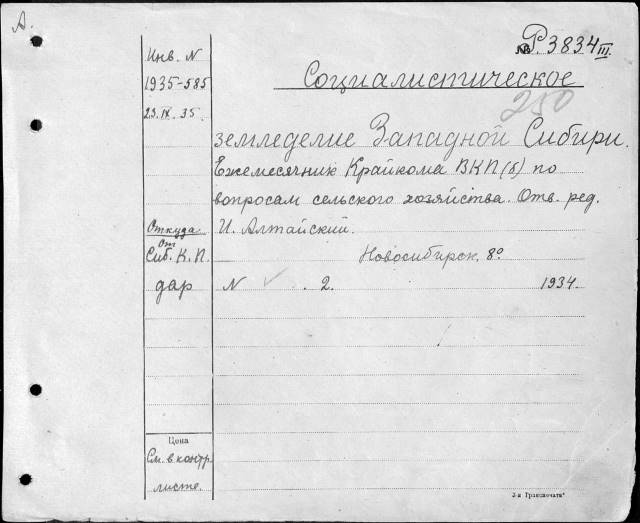 А.
№ Р. 3834 III
Инв. N
Социалистическое
1935-585
250
23.IX.35.
земледелие Западной Сибири.
Ежемесячник Крайкома ВКП(б) по
вопросам сельского хозяйства. Отв. ред.
Откуда
И. Алтайский.
От
Сиб. К. П.
Новосибирск. 8º
дар
N ✓ . 2. 1934.
Цена
См. в контр.
листе.
3-я Гранпечати"